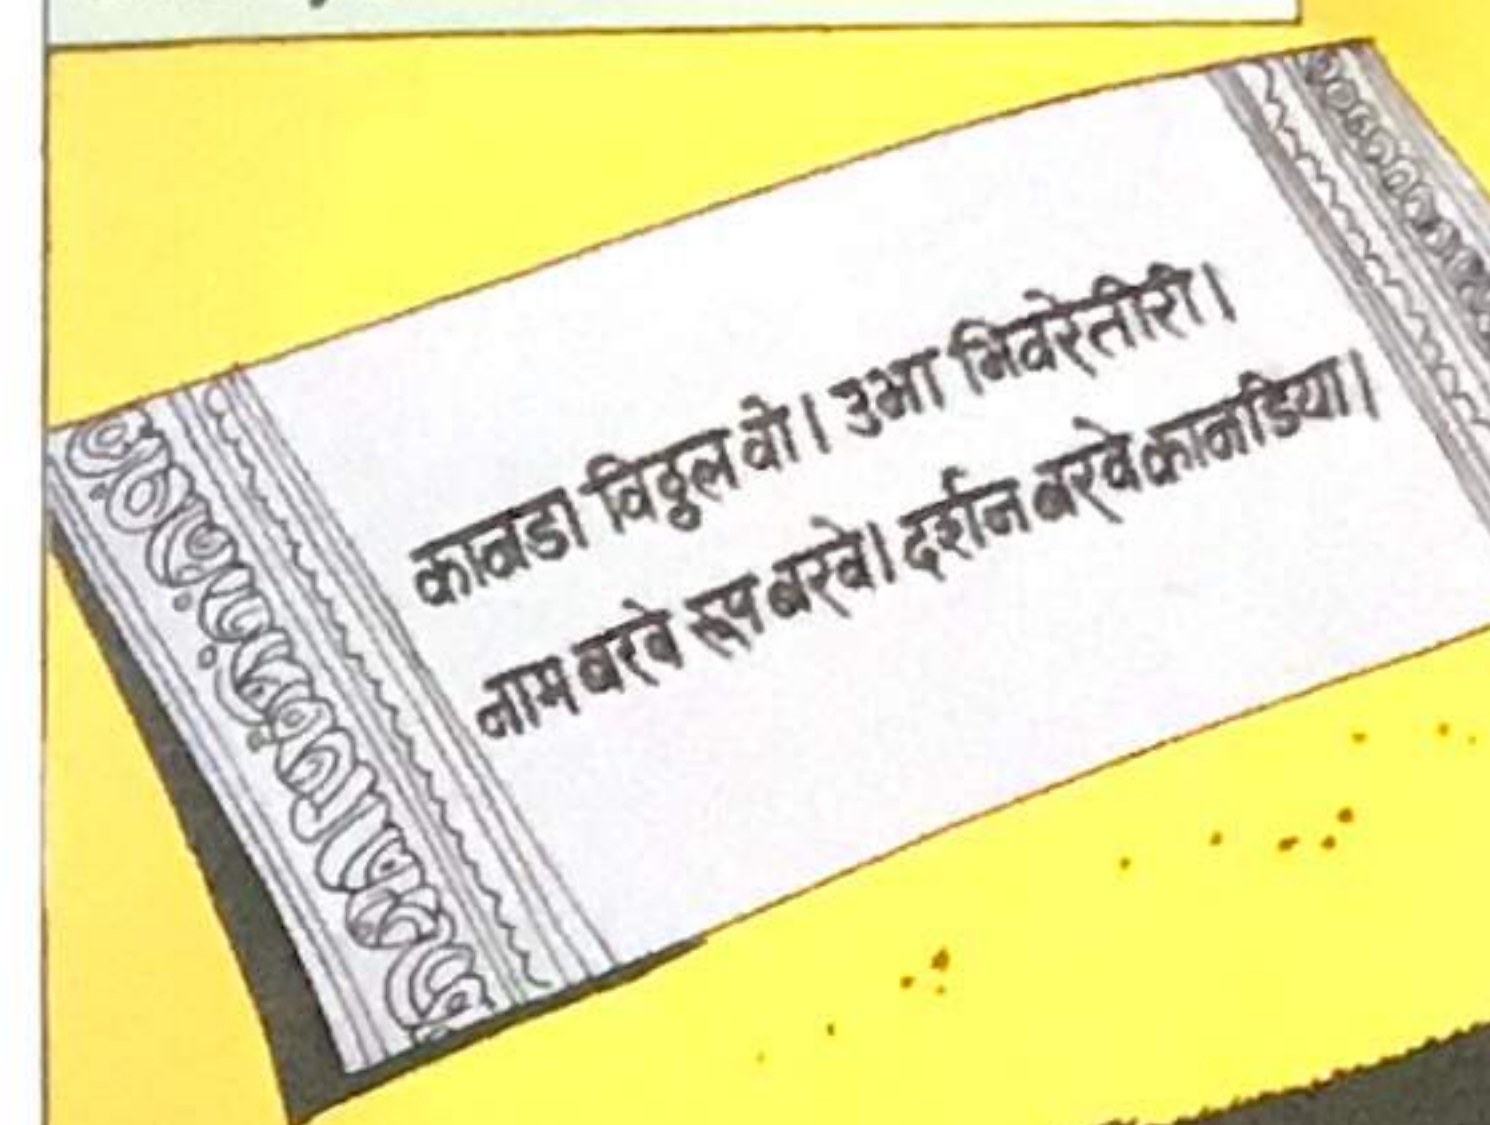 कानडा विठ्ठल वो। उभा भिवरेतीरी।
नाम बरवे रूप बरवे। दर्शन बरवे कानडिया।